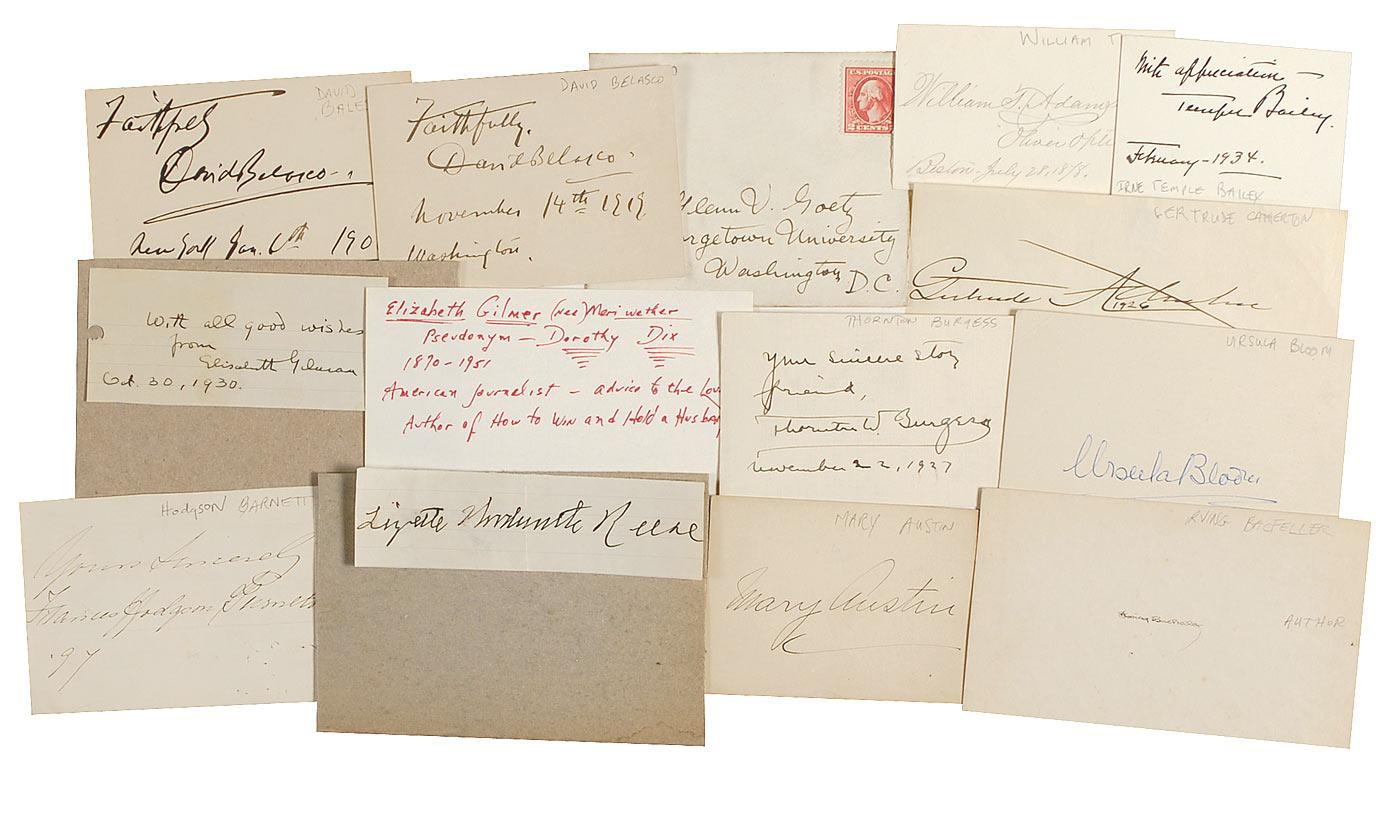 DAVID
Faithfly
David Belasco
New York Jan. 6th 190
DAVID BELASCO
Faithfully.
David Belasco.
November 14th 1919
Washington.
U.S. POSTAGE
2 CENTS 2
Glenn V. Goetz
rgetown University
Washington D.C.
WILLIAM T
William T. Adams
Oliver Opti
Boston July 28, 1878.
With appreciation —
Temple Bailey.
February - 1934.
IRNE TEMPLE BAILEY
GERTRUDE CATHERTON
Gertrude Atherton
1926
With all good wishes
from
Elisabeth Gilman
Oct. 30, 1930.
Elizabeth Gilmer (nee) Meriwether
Pseudonym — Dorothy Dix
1870 - 1951
American Journalist — advice to the Lov
Author of How to Win and Hold a Husban
THORNTON BURGESS
Your sincere story
friend,
Thornton W. Burgess
November 22, 1937
URSULA BLOOM
Ursula Bloom
Hodgson BARNETT
Yours Sincerely
Frances Hodgson Burnett
'97
Lizette Woodworth Reese
MARY AUSTIN
Mary Austin
RVING BACFELLER
AUTHOR